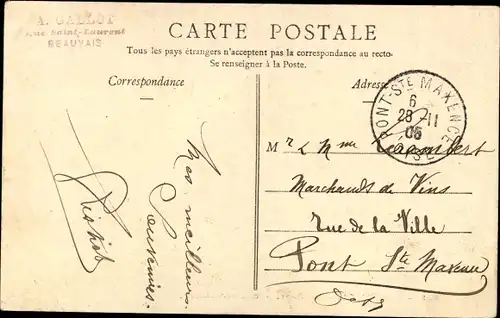 A. GALLOT
Rue Saint-Laurent
BEAUVAIS
CARTE POSTALE
Tous les pays étrangers n'acceptent pas la correspondance au recto-
Se renseigner à la Poste.
Correspondance
Adresse
PONT-STE MAXENCE
6
28 -11
06
OISE
Mes meilleurs
Souvenirs.
Mr & Mme
Marchands de Vins
Rue de la Ville
Pont Ste Maxence
Oise